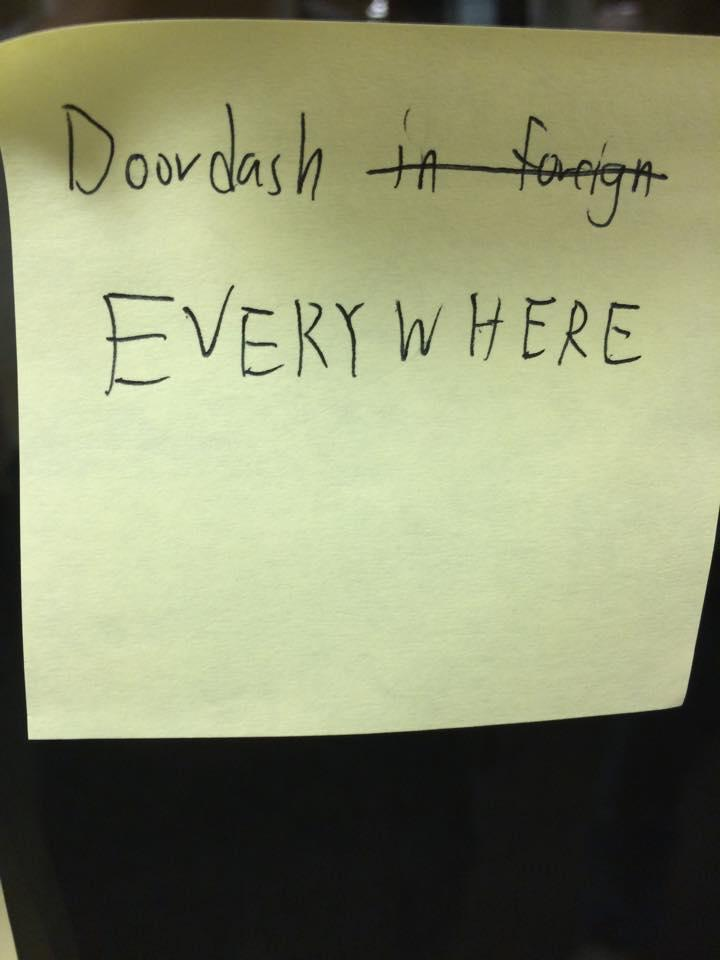 Doordash in foreign
EVERYWHERE